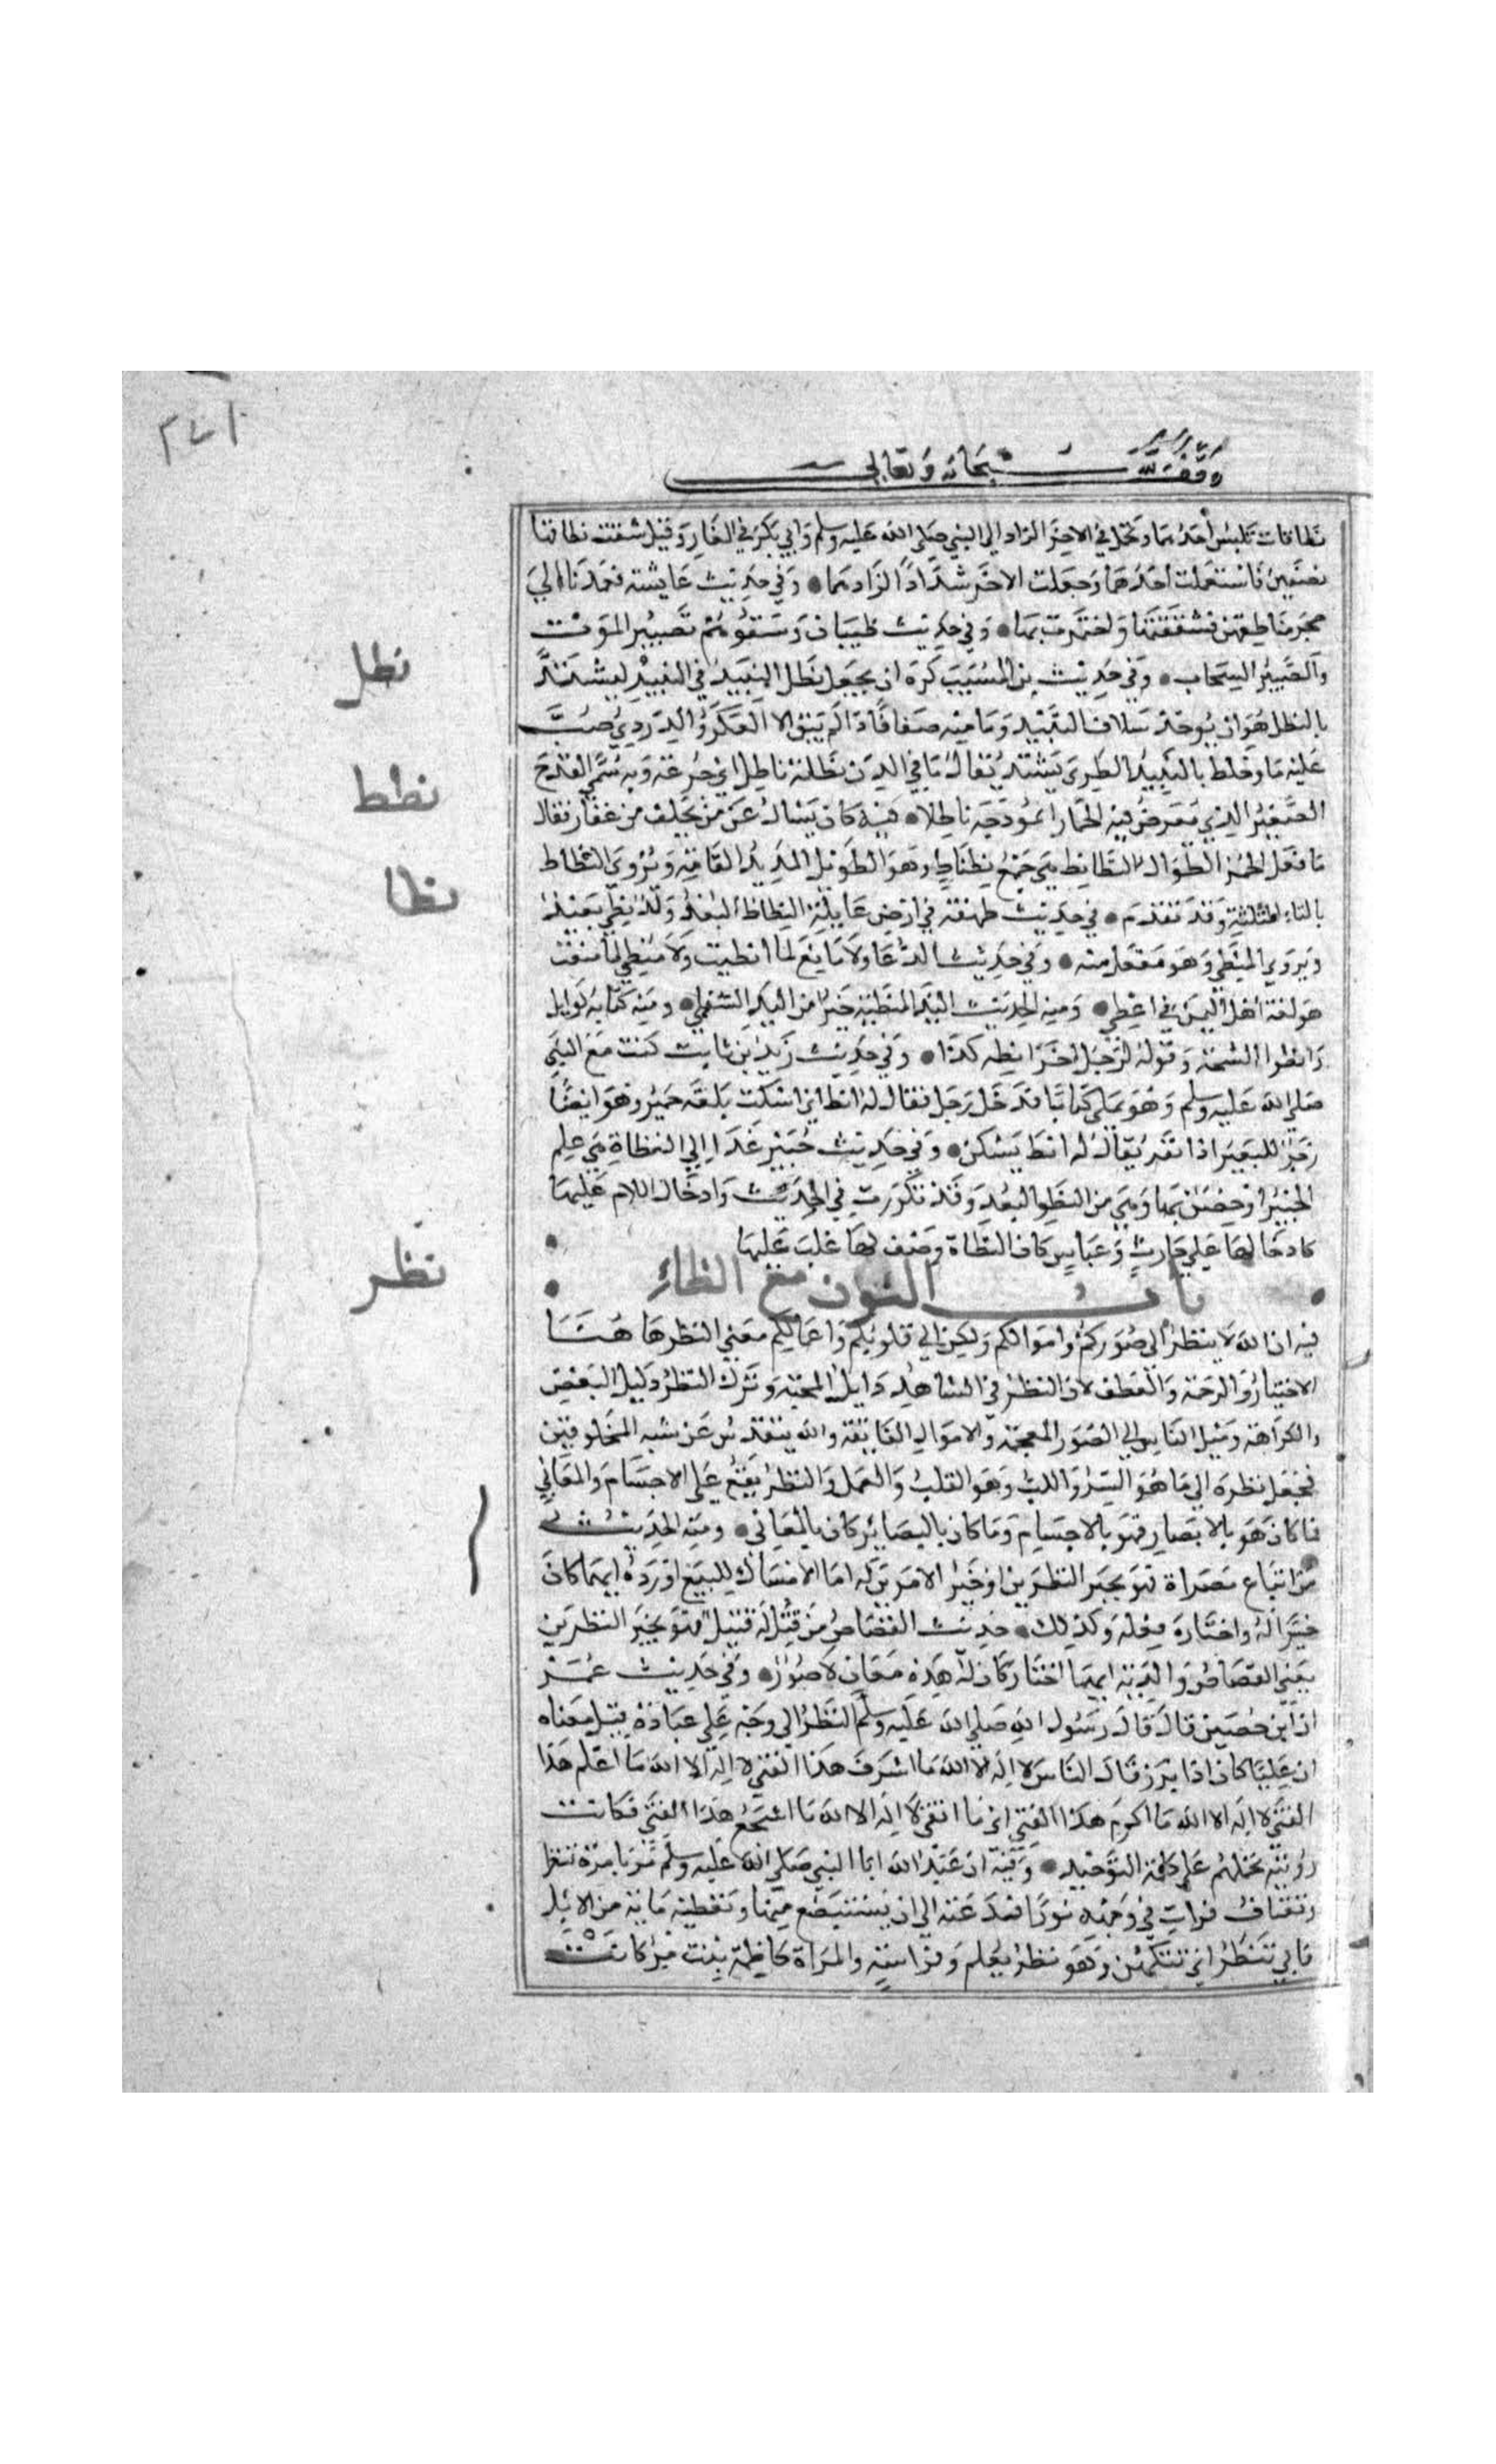 وقف لله سبحانه وتعالى
نطاقان تلبس أحدهما وتحمل في الاخر الزاد الي النبي صلي الله عليه وسلم وابي بكر في الغار وقيل شقت نطاقها
نصفين فاستعملت احدهما وجعلت الاخر شدادا لزادهما • وفي حديث عايشة فعمدنا الي
حجز مناطقهن فشققنها واختمرت بها • وفي حديث ظبيان وسقوهم بصبير الموت
والصبير السحاب • وفي حديث بن المسيب كره ان يجعل نطل النبيذ في النبيذ ليشتد
بالنطل هو ان يوخذ سلاف النبيذ وما منه صفا فاذا لم يبق الا العكر والدردي صب
عليه ما وخلط بالنبيذ الطري يشتد يقال ما في الدن نطلة ناطل اي جرعة وبه سمي القدح
الصغير الذي يعرض فيه الخمار انموذجه ناطلا • فيه كان يسال عن من تخلف من غفار فقال
ما فعل الحمر الطوال النطانط هي جمع نطناط وهو الطويل المديد القامة ويروي الثطاط
بالثاء المثلثة وقد تقدم • في حديث طهفة في ارض غايلة النطاظ البعد وبلد نطي بعيد
ويروي المنطي وهو مفعل منه • وفي حديث الدعا ولا مانع لما انطيت ولا منطي لما منعت
هو لغة اهل اليمن في اعطي • ومنه الحديث اليد المنطية خير من اليد السفلي • ومنه كتابه لوايل
وانطوا الثبجة وقوله لرجل اخر انطه كذا • وفي حديث زيد بن ثابت كنت مع النبي
صلي الله عليه وسلم وهو يملي كتابا فدخل رجل فقال له انط اي اسكت بلغة حمير وهو ايضا
زجر للبعير اذا نفر يقال له انط يسكن • وفي حديث خيبر غدا الي النطاة هي علم
لخيبر او حصن بها وهي من النطو البعد وقد تكررت في الحديث وادخال اللام عليها
كادخالها علي حارث وعباس كان النطاة وصف لها غلب عليها
باب النون مع الظاء
فيه ان الله لا ينظر الي صوركم واموالكم ولكن الي قلوبكم واعمالكم معني النظر ها هنا
الاختيار والرحمة والعطف لان النظر في الشاهد دليل المحبة وترك النظر دليل البغض
والكراهة وميل الناس الي الصور المعجبة والاموال الفايقة والله يتقدس عن شبه المخلوقين
فجعل نظره الي ما هو السر واللب وهو القلب والعمل والنظر يقع علي الاجسام والمعاني
فما كان هو بالابصار فهو بالاجسام وما كان بالبصاير كان بالمعاني • ومنه الحديث
من ابتاع مصراة فهو بخير النظرين او خير الامرين له اما الامساك للبيع او رده ايهما كان
خيرا له واختاره فعله وكذلك • حديث القصاص من قتل له قتيل فهو بخير النظرين
يعني القصاص والدية ايهما اختار كان له هذه معان لا صور • وفي حديث عمر
ان ابن حصين قال قال رسول الله صلي الله عليه وسلم النظر الي وجه علي عبادة قيل معناه
ان عليا كان اذا برز قال الناس لا اله الا الله ما اشرف هذا الفتي لا اله الا الله ما اعلم هذا
الفتي لا اله الا الله ما اكرم هذا الفتي اي ما اتقي لا اله الا الله ما اشجع هذا الفتي فكانت
رويته تحملهم علي كلمة التوحيد • وفيه ان عبد الله ابا النبي صلي الله عليه وسلم مر بامراة تنظر
وتعتاف فرات في وجهه نورا فدعته الي ان يستبضع منها وتعطيه ماية من الابل
فابي تنظر اي تتكهن وهو نظر بعلم وفراسة والمراة كاظمة بنت مر كانت
نطل
نطط
نطا
نظر